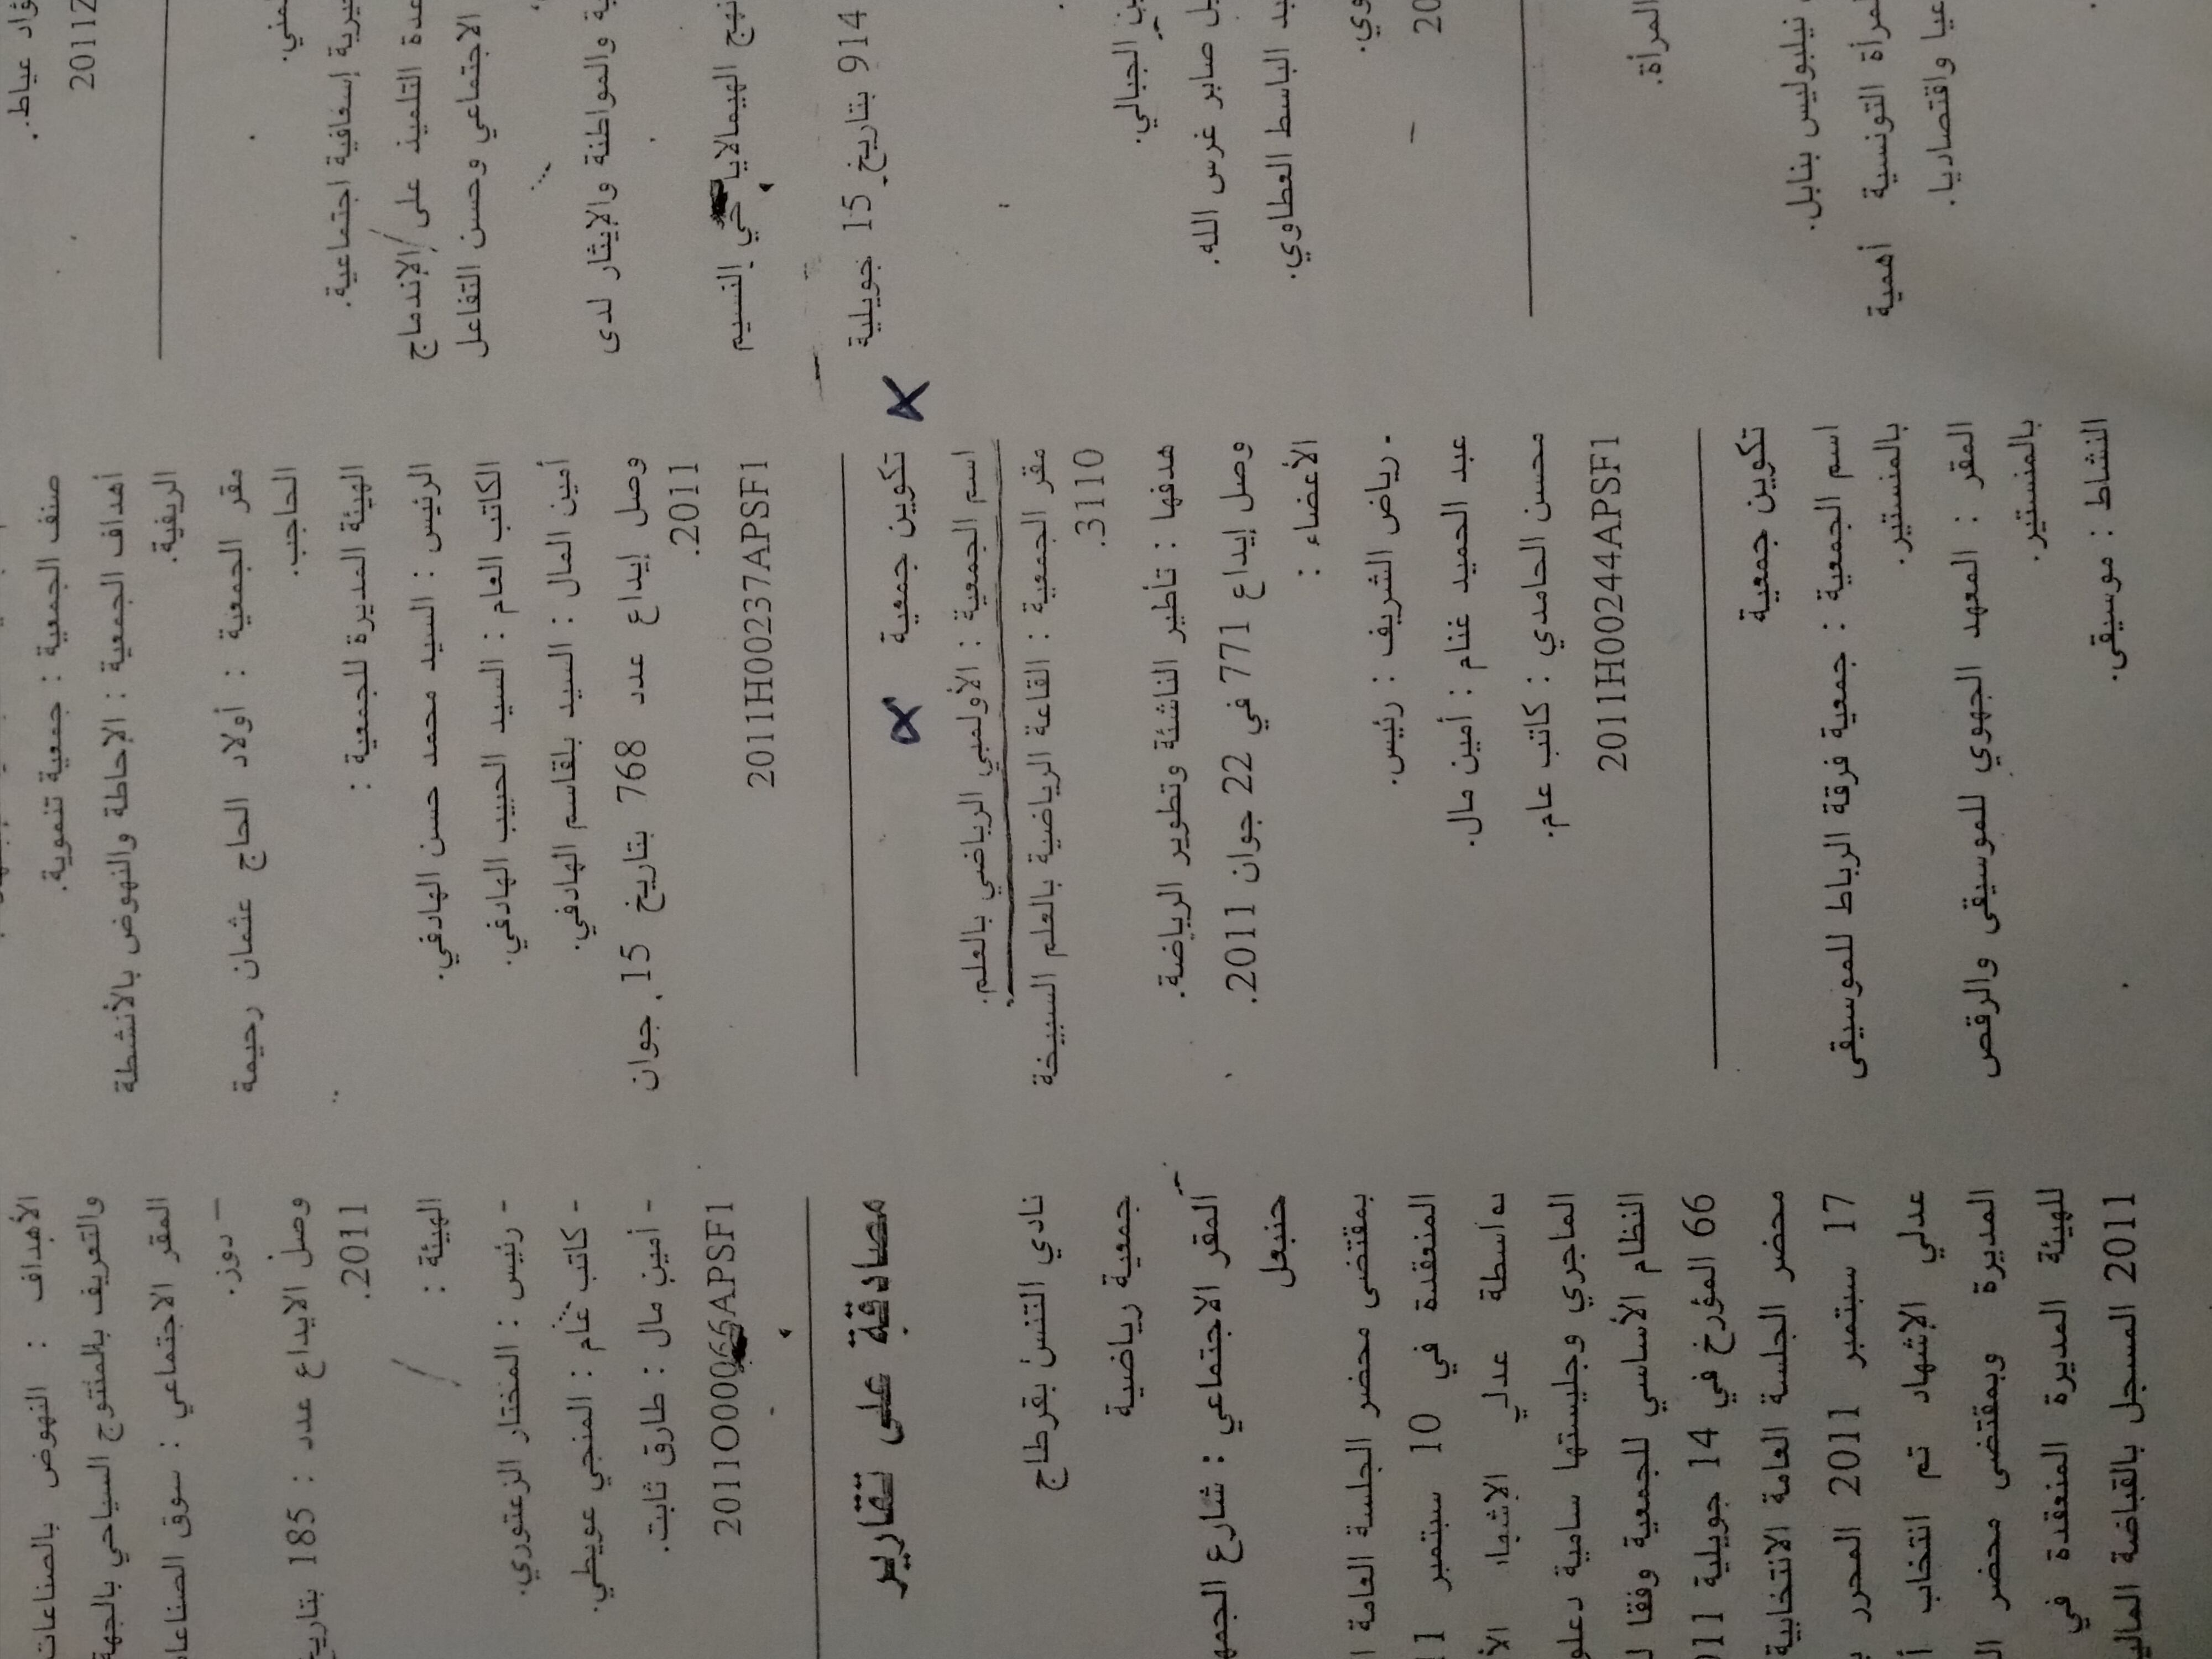 ؤاد عياط.
2011Z
مني.
يرية إسعافية اجتماعية.
عدة التلميذ على الإندماج
الاجتماعي وحسن التفاعل
ية والمواطنة والإيثار لدى
نهج الهيمالايا حي النسيم
914 بتاريخ 15 جويلية
ين الجبالي.
صابر غرس الله.
بد الباسط العطاوي.
وي.
20
المرأة.
نيلبوليس بنابل.
مرأة التونسية أهمية
عيا واقتصاديا.
صنف الجمعية : جمعية تنموية.
أهداف الجمعية : الإحاطة والنهوض بالأنشطة
الريفية.
مقر الجمعية : أولاد الحاج عثمان رحيمة
الحاجب.
الهيئة المديرة للجمعية :
الرئيس : السيد محمد حسن الهادفي.
الكاتب العام : السيد الحبيب الهادفي.
أمين المال : السيد بلقاسم الهادفي.
وصل إيداع عدد 768 بتاريخ 15 جوان
2011.
2011H00237APSF1
تكوين جمعية
اسم الجمعية : الأولمبي الرياضي بالعلم.
مقر الجمعية : القاعة الرياضية بالعلم السبيخة
3110.
هدفها : تأطير الناشئة وتطوير الرياضة.
وصل إيداع 771 في 22 جوان 2011.
الأعضاء :
- رياض الشريف : رئيس.
عبد الحميد غنام : أمين مال.
محسن الحامدي : كاتب عام.
2011H00244APSF1
تكوين جمعية
اسم الجمعية : جمعية فرقة الرباط للموسيقى
بالمنستير.
المقر : المعهد الجهوي للموسيقى والرقص
بالمنستير.
النشاط : موسيقى.
الأهداف : النهوض بالصناعات
والتعريف بالمنتوج السياحي بالجهة
المقر الاجتماعي : سوق الصناعا
– دوز.
وصل الايداع عدد : 185 بتاريخ
2011.
الهيئة :
- رئيس : المختار الزعتوري.
- كاتب عام : المنجي عويطي.
- أمين مال : طارق ثابت.
2011O00066APSF1
مصادقة على تقارير
نادي التنس بقرطاج
جمعية رياضية
المقر الاجتماعي : شارع الجمه
حنبعل
بمقتضى محضر الجلسة العامة ا
المنعقدة في 10 سبتمبر 11
بواسطة عدلي الإشهاد الأ
الماجري وجليستها سامية دعلو
النظام الأساسي للجمعية وفقا ل
66 المؤرخ في 14 جويلية 011
محضر الجلسة العامة الانتخابية
17 سبتمبر 2011 المحرر ب
عدلي الإشهاد تم انتخاب أ
المديرة وبمقتضى محضر ال
للهيئة المديرة المنعقدة في
2011 المسجل بالقباضة المالي